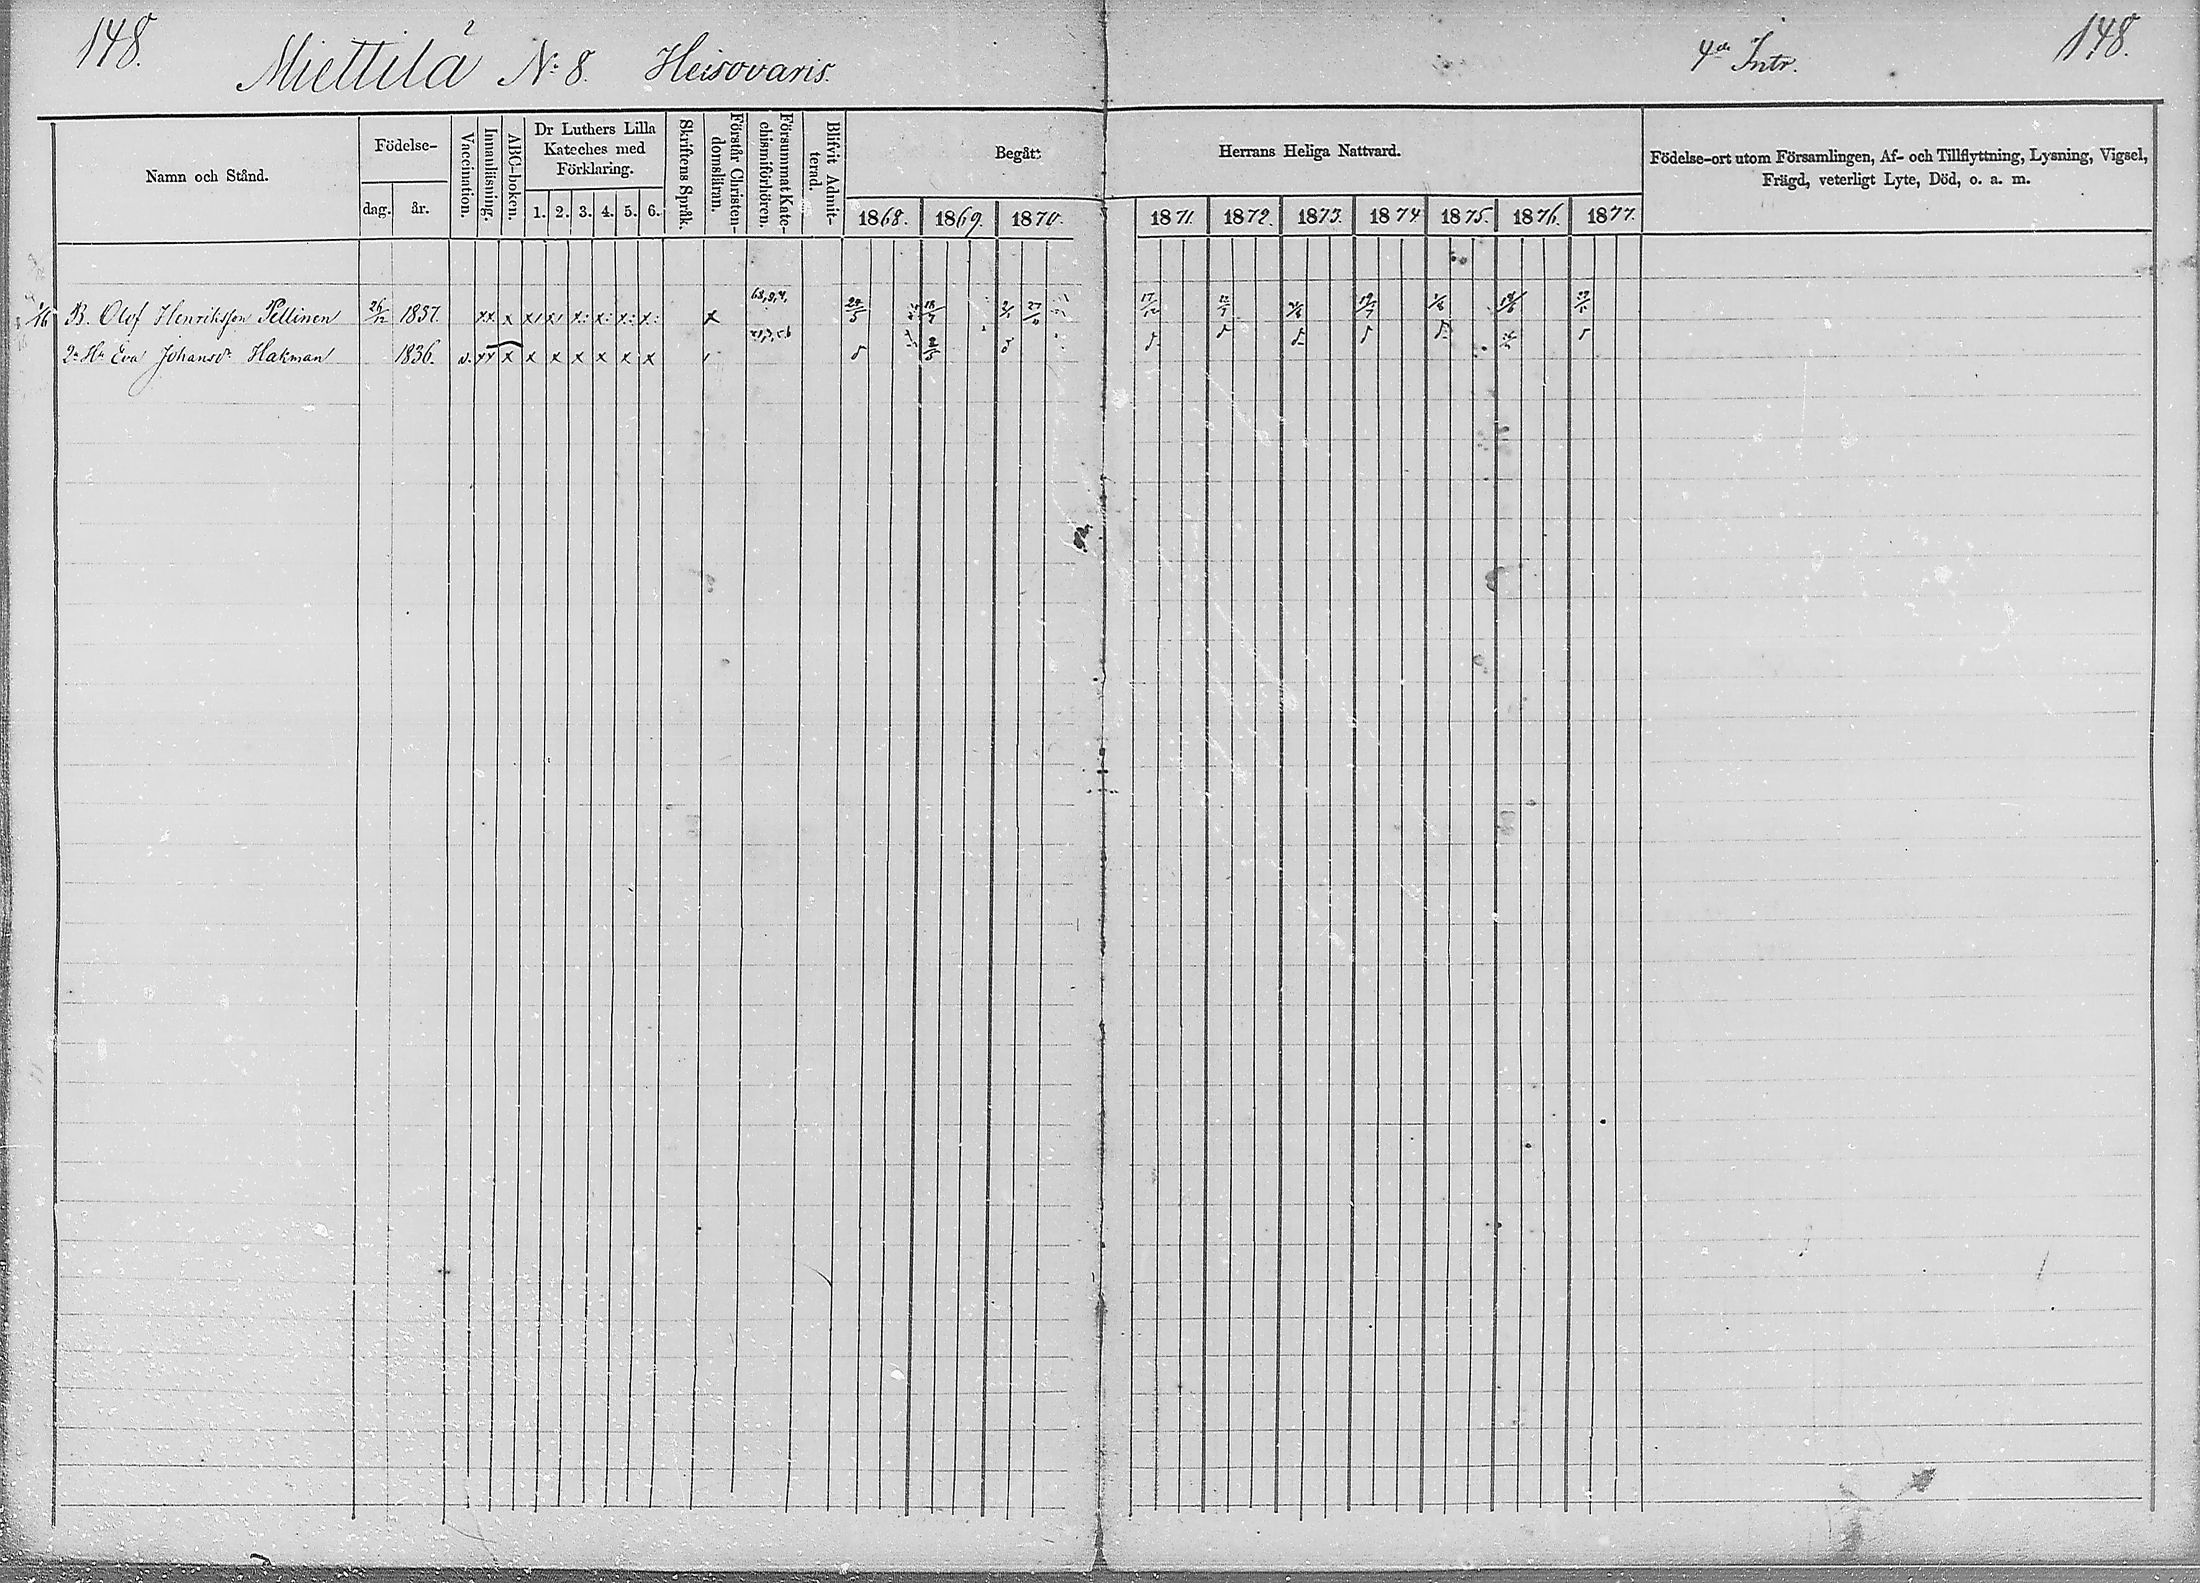 148.
Miettilä № 8. Heisovaris.
4de Intr.
148.
Namn och Stånd.
Födelse-
dag. år.
Vaccination.
Innanläsning.
ABC-boken.
Dr Luthers Lilla
Kateches med
Förklaring.
1. 2. 3. 4. 5. 6.
Skriftens Språk.
Förstår Christen-
domsläran.
Försummat Kate-
chismiförhören.
Blifvit Admit-
terad.
Begått
Herrans Heliga Nattvard.
1868. 1869. 1870. 1871. 1872. 1873. 1874 1875. 1876. 1877.
Födelse-ort utom Församlingen, Af- och Tillflyttning, Lysning, Vigsel,
Frägd, veterligt Lyte, Död, o. a. m.
B. Olof Henriksson Pellinen 26/12 1837. xx x x x x x x x x
2a Hu Eva Johansdr Hakman 1836. v. xx x x x x x x x